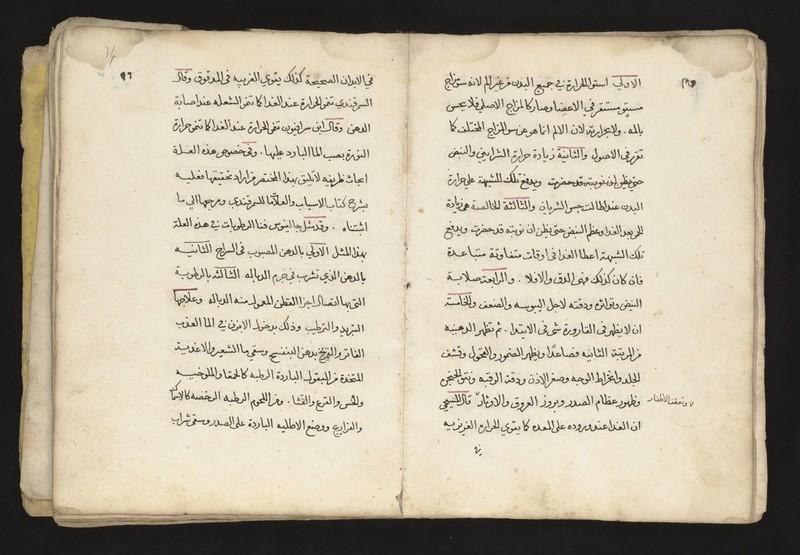 الاولى استواء الحرارة في جميع البدن من غير الم لانه سوء مزاج
مستو مستقر في الاعضا وصار كالمزاج الاصلي فلا يحس
بالمه . ولا بحرارته لان الالم انما هو عن سو المزاج المختلف كما
تقرر في الاصول والثانية زيادة حرارة الشرايين والنبض
حتى يظن ان نوبته قد حضرت ويدفع تلك الشبهة على حرارة
البدن عند الملامس حس الشريان والثالثة الخالصة هى زيادة
الحمى بعد الغدا وعظم النبض حتى يظن ان نوبته قد حضرت ويدفع
تلك الشبهة اعطا الغدا فى اوقات متفاوتة متباعدة
فان كان كذلك فهى الدق والا فلا . والرابعة صلابة
النبض وتواتره ودقته لاجل اليبوسه والضعف والخامسة
ان لا يظهر فى القارورة شى فى الابتدا . ثم تظهر الدهنية
من المرتبة الثانيه فصاعدا ويظهر الضمور والنحول وقشف
الجلد وانخراط الوجه وصغر الاذن ودقة الرقبه ونتو الحنجرة
وظهور عظام الصدر وبروز العروق والاوتار قال المسيحى
وتعقف الاظفار
ان الغدا عند وروده على المعده كما يقوي الحرارة الغريزيه
في
٩٦
في الابدان الصحيحة كذلك يقوي الغريبه فى المدقوق وقال
السمرقندي تنمى الحرارة عند الغدا كما تنمى الشعله عند اصابة
الدهن وقال ابن سرافيون تنمى الحرارة عند الغدا كما تنمى حرارة
النورة بصب الماء البارد عليها . وفى خصوص هذه العلة
ابحاث ظريفه لا تليق بهذا المختصر فمن اراد تحقيقها فعليه
بشرح كتاب الاسباب والعلامات للسمرقندي ومرجعها الى ما
اثبتناه . وقد مثل جالينوس فنا الرطوبات في هذه العلة
بهذا المثل الاولى بالدهن المصبوب فى السراج الثانيه
بالدهن الذي تشرب في جرم الذباله الثالثة بالرطوبة
التى بها اتصال اجزا القطن المعمول منه الذباله وعلاجها
التبريد والترطيب وذلك بدخول الابزن في الماء العذب
الفاتر والتمريخ بدهن البنفسج وسقى ما الشعير والاغذية
المتخذة من البقول الباردة الرطبه كالحمقا والملوخيه
والخس والقرع والقثا . ومن اللحوم الرطبه الرخصه كالاسماك
والفراريج ووضع الاطليه الباردة على الصدر وسقى شراب